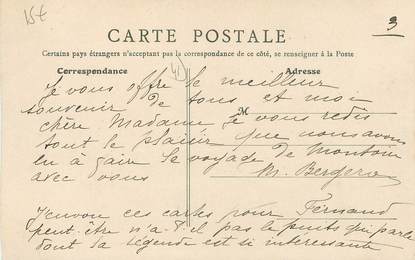 15€
3
CARTE POSTALE
Certains pays étrangers n'acceptant pas la correspondance de ce côté, se renseigner à la Poste
Correspondance
Adresse
M
Je vous offre le meilleur
souvenir de tous et moi
chère Madame je vous redis
tout le plaisir que nous avons
eu à faire le voyage de Montoire
avec vous
M. Bergeron
J'envoie ces cartes pour Fernand
peut-être n'a-t-il pas le puits qui parle
dont la légende est si intéressante